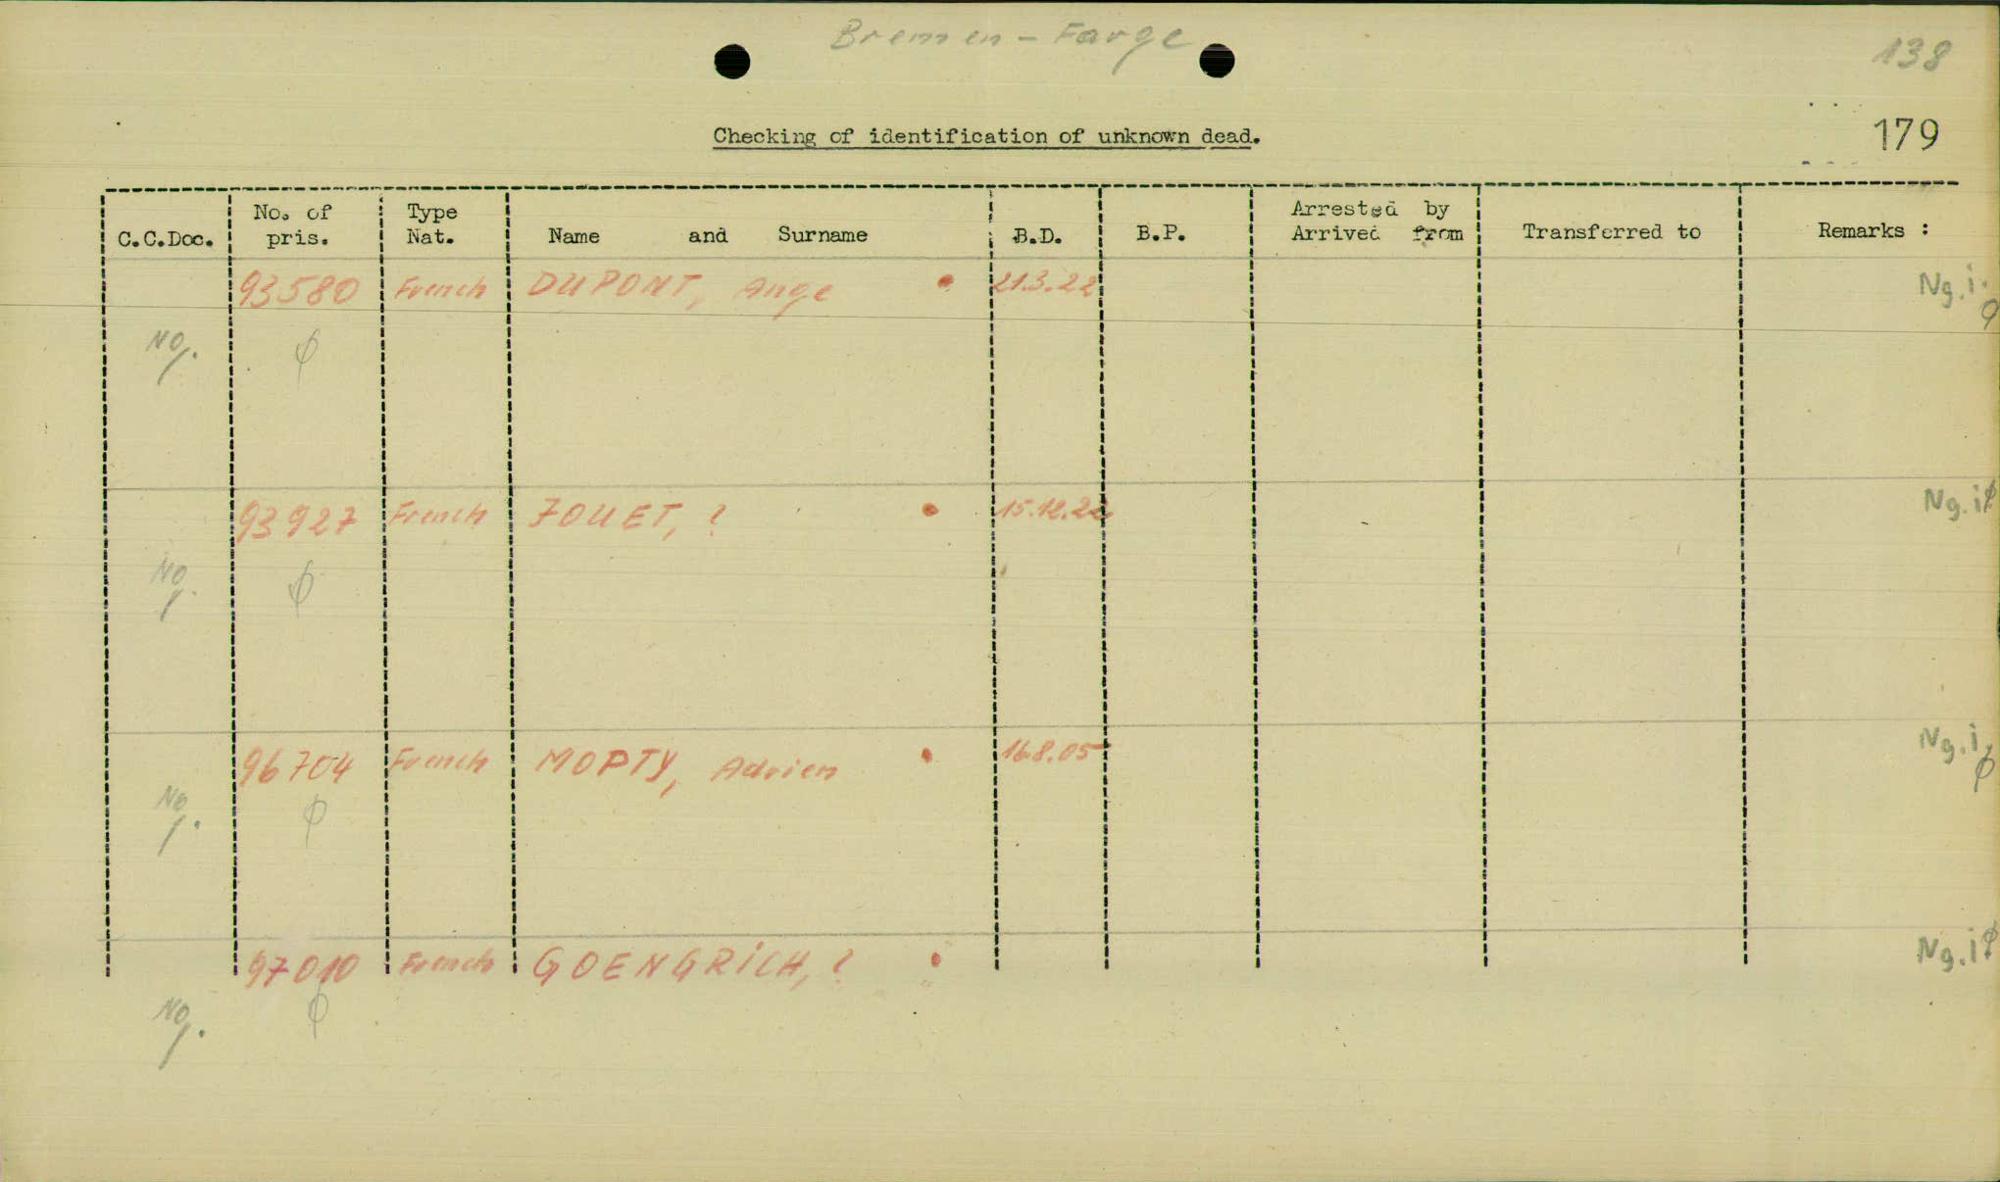 Bremen - Farge
138
179
Checking of identification of unknown dead.
C.C.Doc. No. of pris. Type Nat. Name and Surname B.D. B.P. Arrested by Arrived from Transferred to Remarks :
93580 French DUPONT, Ange 21.3.22 Ng.i.
No.
93927 French JOUET, ? 15.12.22 Ng.i
No.
96704 French MOPTY, Adrien 16.8.05 Ng.i
No.
97010 French GOENGRICH, ? Ng.i
No.